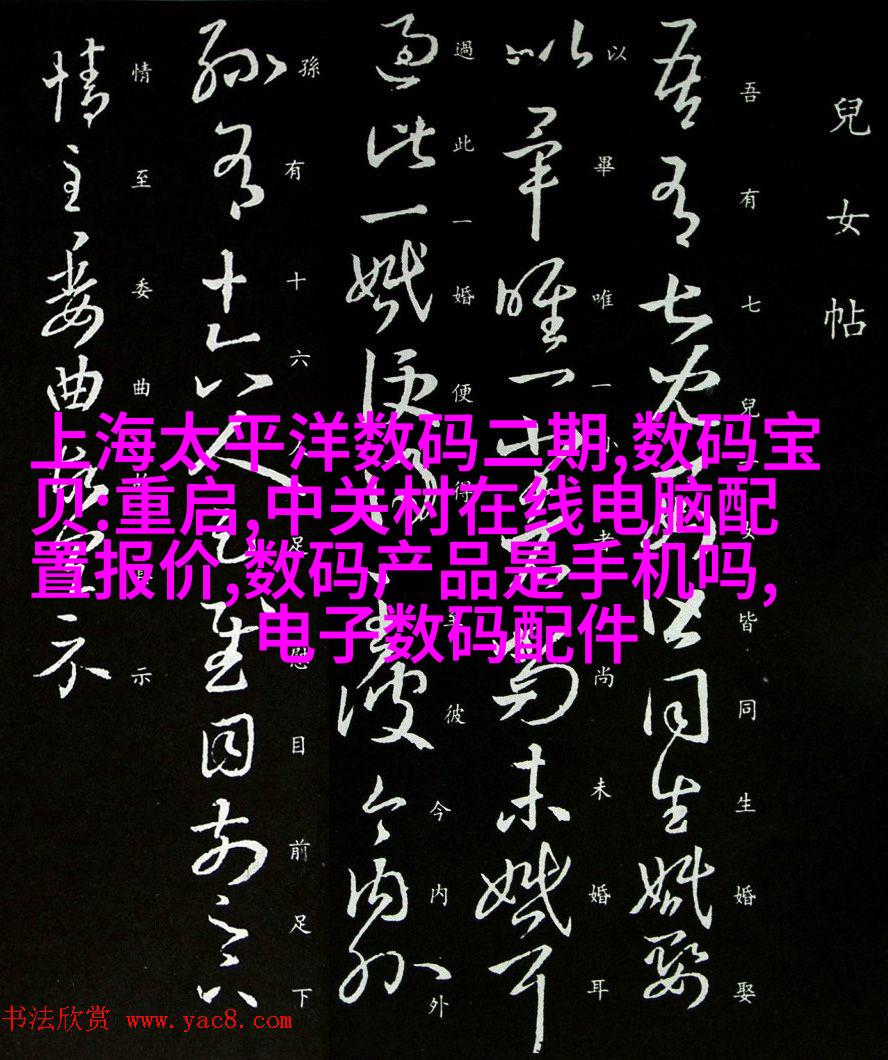 兒女帖
吾有七兒一女皆同生婚娶
以畢唯一小者尚未婚耳
過此一婚便得至彼今内外
孫有十六人足慰目前足下
情至委曲故具示
上海太平洋数码二期,数码宝
贝:重启,中关村在线电脑配
置报价,数码产品是手机吗,
电子数码配件
书法欣赏 www.yac8.com